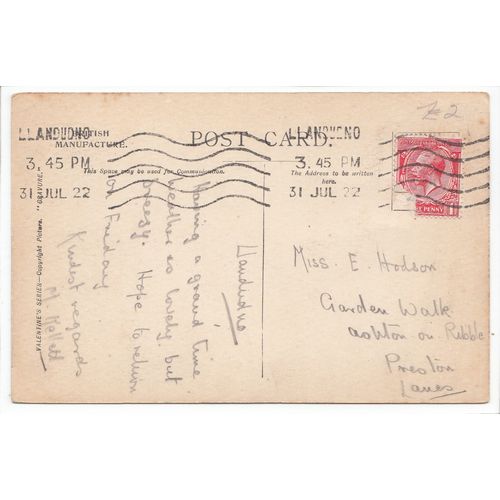 £2
LLANDUDNO
3. 45 PM
31 JUL 22
LLANDUDNO
3. 45 PM
31 JUL 22
BRITISH
MANUFACTURE.
POST CARD.
This Space may be used for Communication.
The Address to be written
here.
PENNY
VALENTINE'S SERIES—Copyright Picture. "GRAVURE."
Llandudno
Having a grand time
weather is lovely but
breezy. Hope to return
on Friday
Kindest regards
M.
Miss. E. Hodson
Garden Walk
Ashton on Ribble
Preston
Lancs